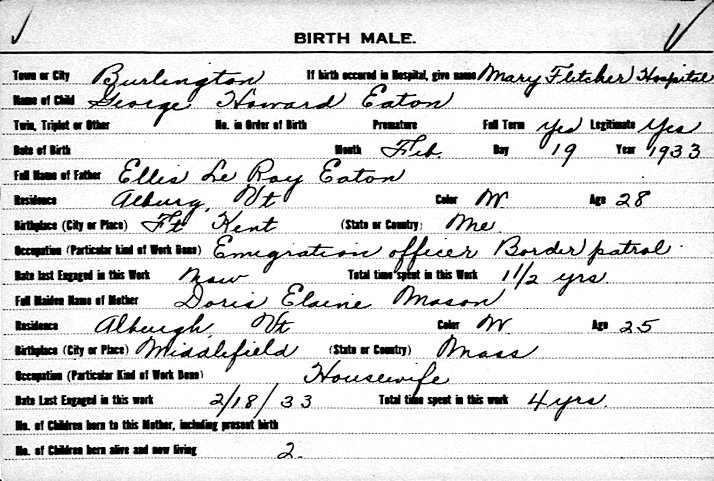 BIRTH MALE.
Town or City Burlington If birth occured in Hospital, give name Mary Fletcher Hospital
Name of Child George Howard Eaton
Twin, Triplet or Other No. in Order of Birth Premature Full Term Yes Legitimate Yes
Date of Birth Month Feb. Day 19 Year 1933
Full Name of Father Ellis Le Roy Eaton
Residence Alburg, Vt Color W Age 28
Birthplace (City or Place) Ft Kent (State or Country) Me
Occupation (Particular kind of Work Done) Emigration officer Border patrol
Date last Engaged in this Work Now Total time spent in this Work 1 1/2 yrs.
Full Maiden Name of Mother Doris Elaine Mason
Residence Alburgh, Vt Color W Age 25
Birthplace (City or Place) Middlefield (State or Country) Mass
Occupation (Particular Kind of Work Done) Housewife
Date Last Engaged in this work 2/18/33 Total time spent in this work 4 yrs.
No. of Children born to this Mother, including present birth
No. of Children born alive and now living 2